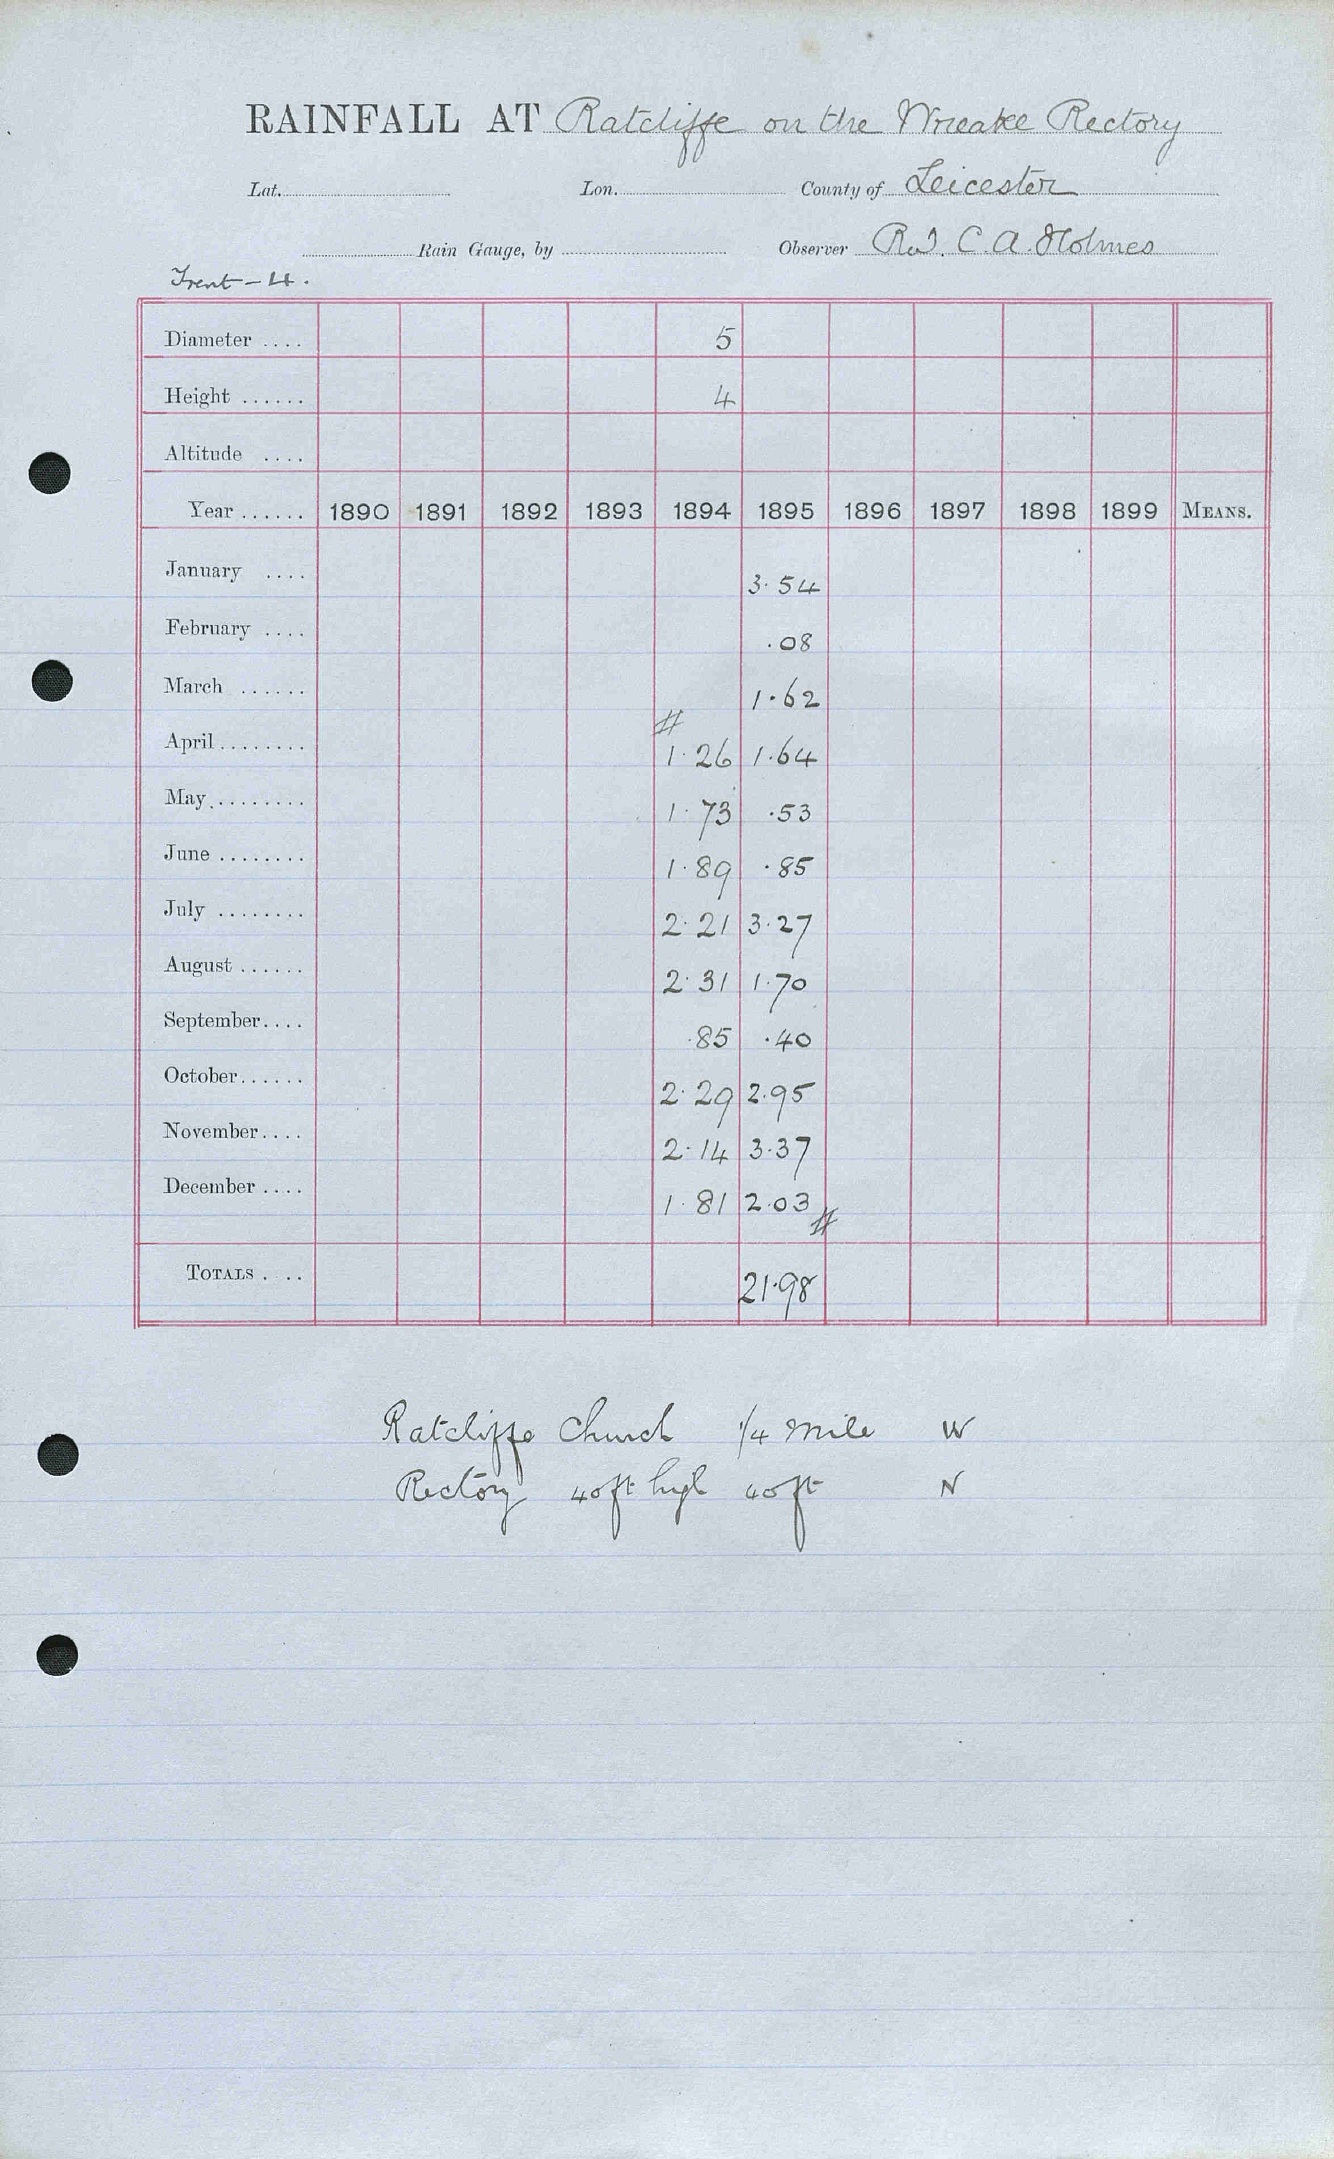 RAINFALL AT Ratcliffe on the Wreake Rectory
Lat. Lon. County of Leicester
Rain Gauge, by Observer Rev. C. A. Holmes
Trent - 4.
Diameter .... 5
Height ...... 4
Altitude ....
Year ...... 1890 1891 1892 1893 1894 1895 1896 1897 1898 1899 MEANS.
January .... 3.54
February .... .08
March ...... 1.62
#
April ........ 1.26 1.64
May ........ 1.73 .53
June ........ 1.89 .85
July ........ 2.21 3.27
August ...... 2.31 1.70
September .... .85 .40
October ...... 2.29 2.95
November .... 2.14 3.37
December .... 1.81 2.03 #
TOTALS . .. 21.98
Ratcliffe Church 1/4 mile W
Rectory 40ft high 40ft N